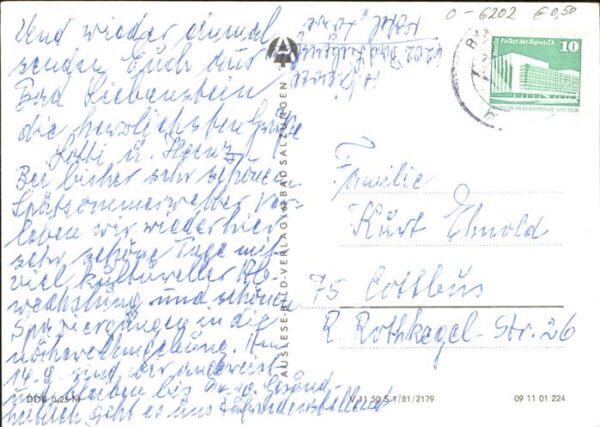 Und wieder einmal
senden Euch aus
Bad Liebenstein
die herzlichsten Grüße
Lotti u. Heinz
Bei bisher sehr schönem
Spätsommerwetter ver-
leben wir wieder hier
sehr schöne Tage mit
viel kultureller Ab
wechslung und schönen
Spaziergängen in die
nähere Umgebung. Am
14.9. sind wir angereist
und bleiben bis
geht es uns zufriedenstellend
6202 Bad Liebenstein
0-6202 € 0,50
Palast der Republik
10
DEUTSCHE DEMOKRATISCHE REPUBLIK
AUSLESE-BILD-VERLAG BAD SALZUNGEN
Familie
Kurt
75 Cottbus
R. Rothkegel-Str. 26
DDR 0,25 M
V 11 50 S 1/81/2179
09 11 01 224